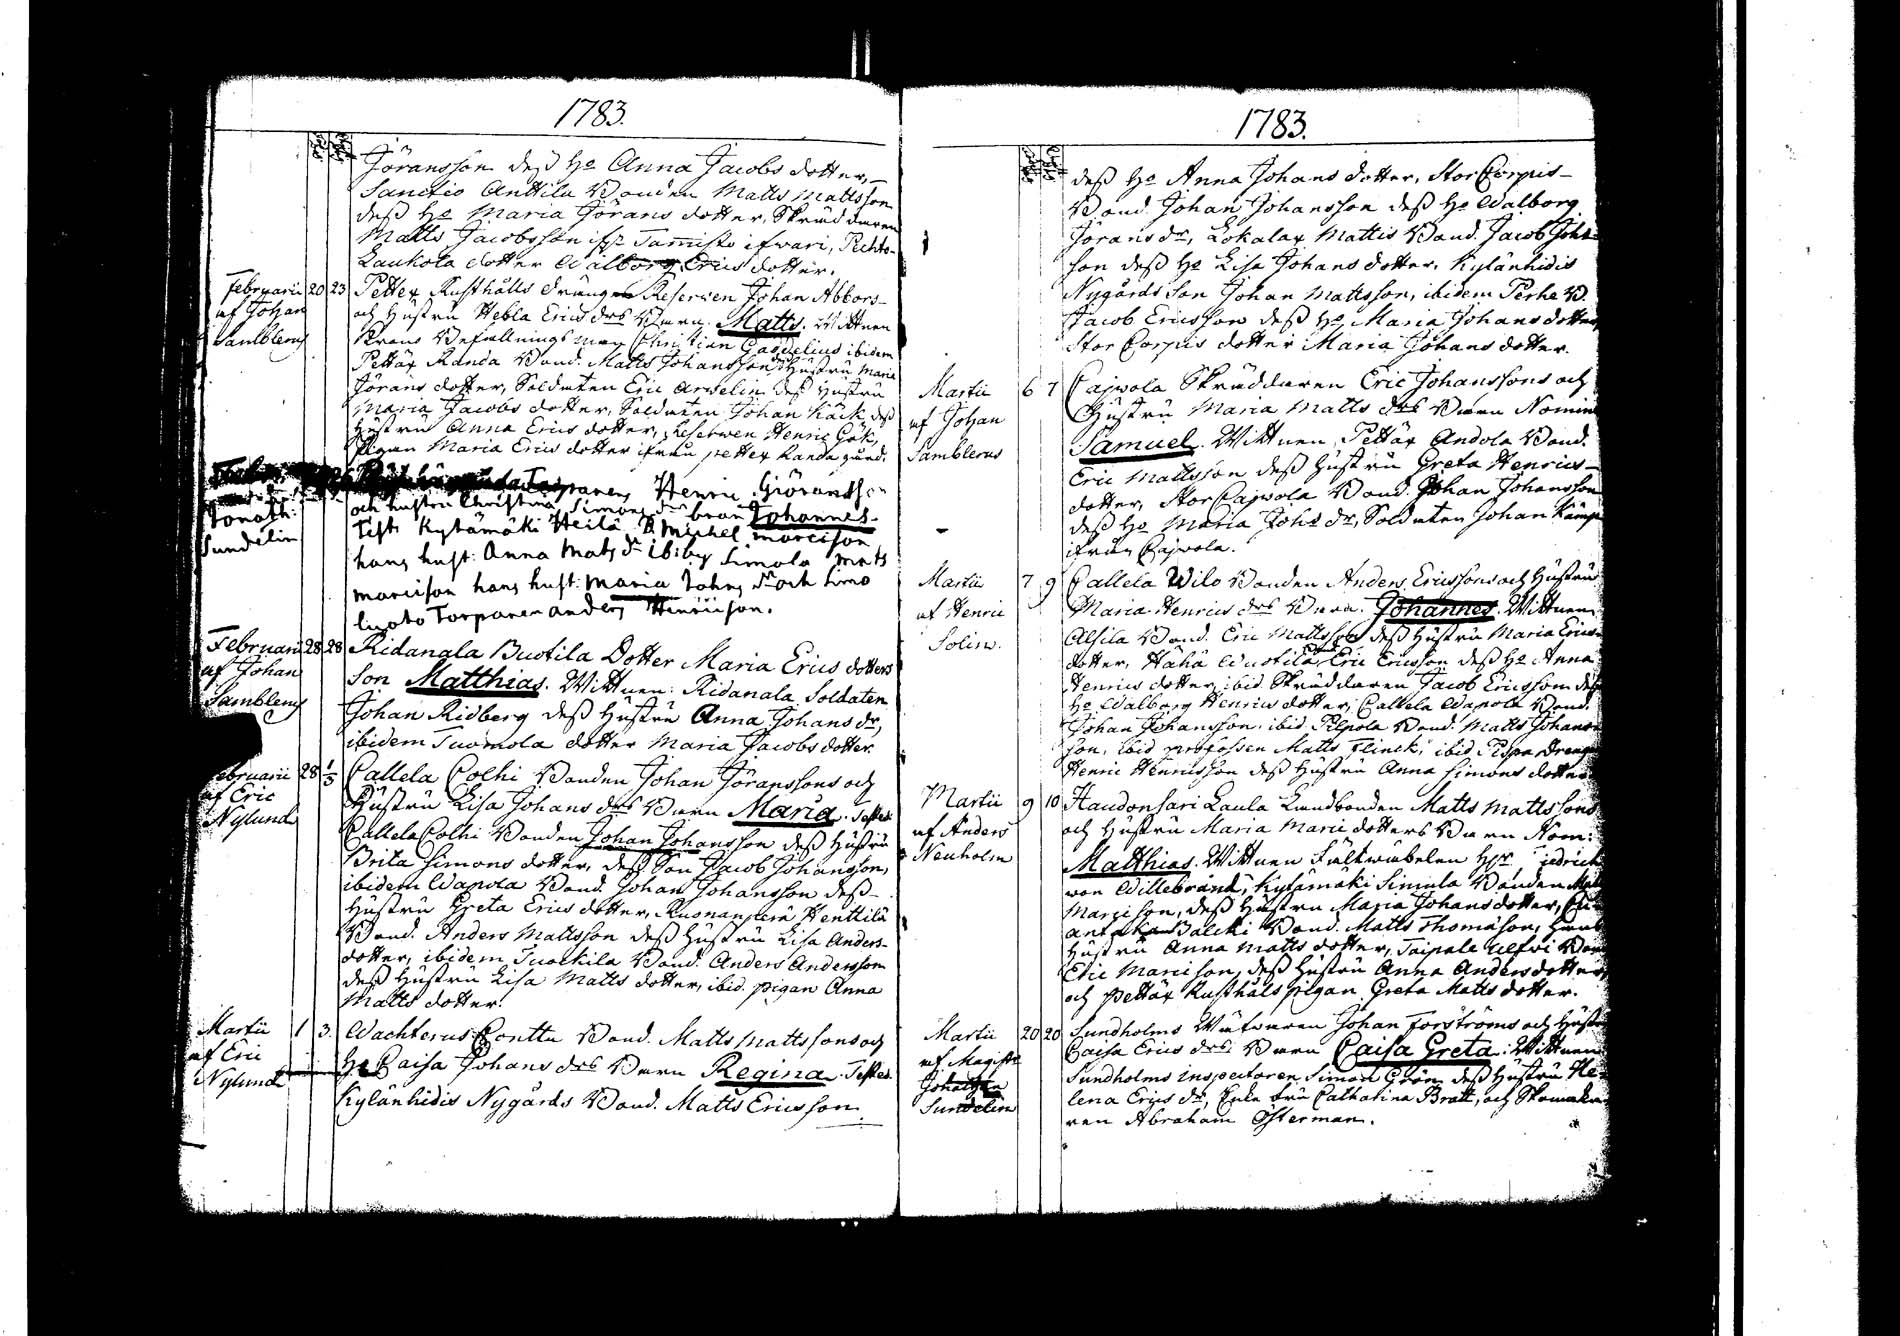 1783.
Jöransson deß Ho Anna Jacobs dotter,
Sanctio Anttila Bonden Matts Mattsson
deß Ho Maria Görans dotter, Skräddaren
Matts Jacobsson
Laukola dotter Walborg Erics dotter.
Februarii 20 23 Pettex Rusthålls drängen Reserven Johan Abbors-
af Johan och Hustru Hebla Erics drs Barn. Matts. Wittnen
Samblerus Krono Befallnings man Christian Gaddelius ibidem
Pettäx Randa Bond. Matts Johansson deß Hustru Maria
Görans dotter, Soldaten Eric Arvelin deß Hustru
Maria Jacobs dotter, Soldaten Johan Käck deß
Hustru Anna Erics dotter, Reserven Henric Gök,
Pigan Maria Erics dotter ifrån pettex Randa gård.
Torparens Henric Giöransson
Jonath: och hustru Christina Simons dr barn Johannes
Sundelin Test: Kylämäki Heilä B Michel Marcison
hans hust: Anna Mats dr ibid Simola Mats
Marcison hans hust: Maria Johans dr och Simo
luoto Torparen Anders Henricson.
Februarii 28 28 Ridanala Buotila Dotter Maria Erics dotters
af Johan Son Matthias. Wittnen: Ridanala Soldaten
Samblerus Johan Ridberg deß Hustru Anna Johans dr,
ibidem Tuomola dotter Maria Jacobs dotter.
Februarii 28 1/3 Callela Colhi Bonden Johan Jöranssons och
af Eric Hustru Lisa Johans drs Barn Maria. Testes
Nylund Callela Colhi Bonden Johan Johansson deß Hustru
Brita Simons dotter, deß Son Jacob Johansson,
ibidem Wapola Bond. Johan Johansson deß
Hustru Greta Erics dotter, Kusnanperä Henttilä
Bond. Anders Mattsson deß Hustru Lisa Anders-
dotter, ibidem Tuockila Bond. Anders Andersson
deß Hustru Lisa Matts dotter, ibid. pigan Anna
Matts dotter.
Martii 1 3. Wachterus Contta Bond. Matts Mattssons och
af Eric Ho Caisa Johans drs Barn Regina. Testes.
Nylund Kylänhidis Nygårds Bond. Matts Ericsson.
1783.
deß Ho Anna Johans dotter, Stor Corpis-
Bond. Johan Johansson deß Ho Walborg
Jörans dr, Lokalax Mattis Bond. Jacob Johans-
son deß Ho Lisa Johans dotter, Kylänhidis
Nygårds Son Johan Mattsson, ibidem Perhe B.
Jacob Ericsson deß Ho Maria Johans dotter,
Stor Corpis dotter Maria Johans dotter.
Martii 6 7 Cajvola Skräddaren Eric Johanssons och
af Johan Hustru Maria Matts drs Barn Nomine
Samblerus Samuel. Wittnen, Pettäx Andola Bond.
Eric Mattsson deß Hustru Greta Henrics-
dotter, Stor Cajvola Bond. Johan Johansson
deß Ho Maria Johs dr, Soldaten Johan Kämpe
ifrån Cajvola.
Martii 7 9 Callela Wilo Bonden Anders Ericssons och Hustrus
af Henric Maria Henrics drs Barn. Johannes. Wittnen
Solin. Alsila Bond. Eric Mattsson deß Hustru Maria Erics
dotter, Hähä Wuotila Bond. Eric Ericsson deß Ho Anna
Henrics dotter, ibid. Skräddaren Jacob Ericsson deß
Ho Walborg Henrics dotter, Callela Wapola Bond.
Johan Johansson, ibid. Pilpola Bond. Matts Johans-
son, ibid. profossen Matts Flinck, ibid. Drengen
Henric Henricsson deß Hustru Anna Simons dotter.
Martii 9 10 Haudonsari Laula Landbonden Matts Mattssons
af Anders och Hustru Maria Marci dotters Barn Nom:
Neuholm Matthias. Wittnen Fältwäbelen
von Willebrand, Kylämäki Simula Bonden Matts
Marcison, deß Hustru Maria Johans dotter,
Balcki Bond. Matts Thomason,
Hustru Anna Matts dotter, Taipale Ulfvi Bond.
Eric Marcison, deß Hustru Anna Anders dotter,
och pettäx Rusthåls pigan Greta Matts dotter.
Martii 20 20 Sundholms Wäfvaren Johan Forströms och Hustru
af Magistr Caisa Erics drs Barn Caisa Greta. Wittnen
Johathan Sundholms inspectoren Simon Grön deß Hustru He-
Sundelin lena Erics dr, Enke fru Catharina Bratt, och Skomaka-
ren Abraham Österman.